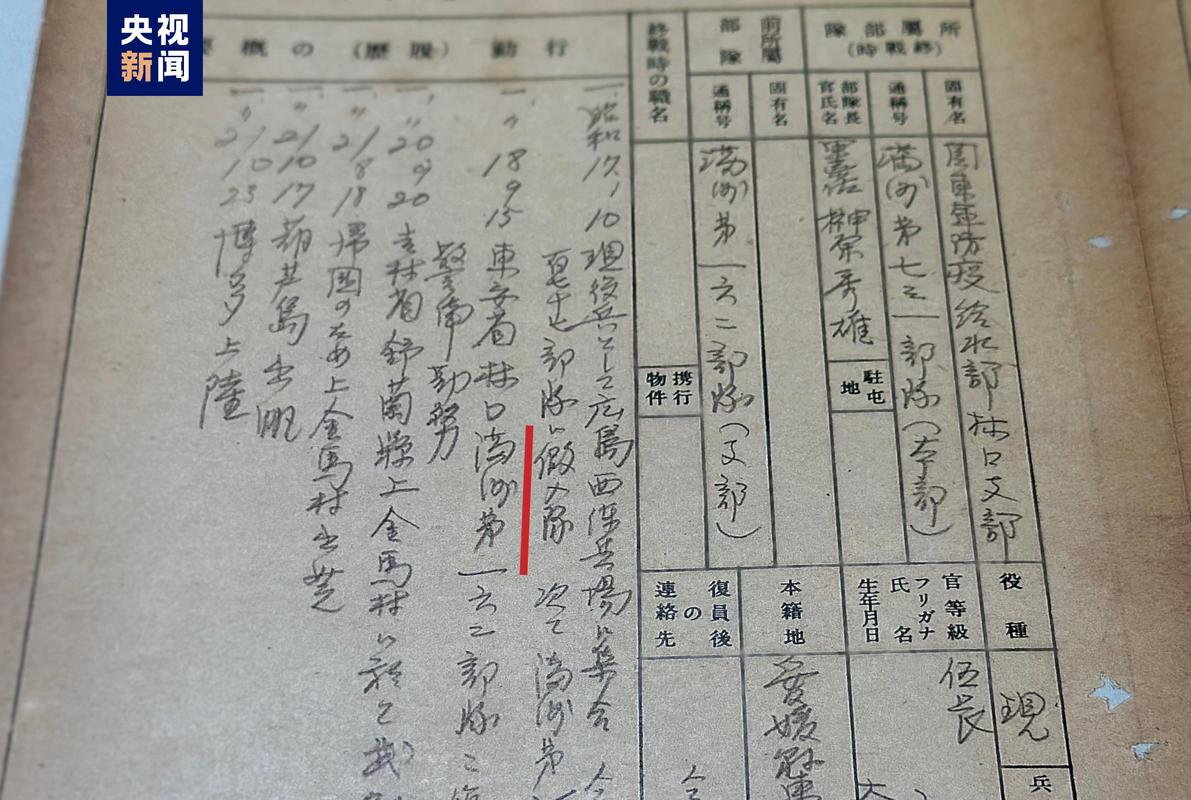 央视
新闻
所屬部隊
(終戰時)
固有名
関東軍防疫給水部林口支部
通稱号
満洲第七三一部隊(本部)
部隊長
官氏名
軍医 榊原秀雄
駐屯
地
前所屬
部隊
固有名
通稱号
満洲第一六二部隊(支部)
終戰時の職名
携行
物件
行動(履歷)の概要
一、昭和17.1.10 現役兵として広島西練兵場に集合
部隊に仮入隊 次て満洲第
一、〃18 9 15 東安省林口満洲第一六二部隊ニ
警備勤務
一、〃20 9 20 吉林省舒蘭縣上金馬村ニ於て武
一、〃21 8 18 帰国のため上金馬村出発
一、〃21 10 17 葫芦島出帆
一、〃21 10 23 博多上陸
役種
現
兵
官等級
フリガナ
氏名
生年月日
伍長
本籍地
愛媛縣
復員後
の
連絡先